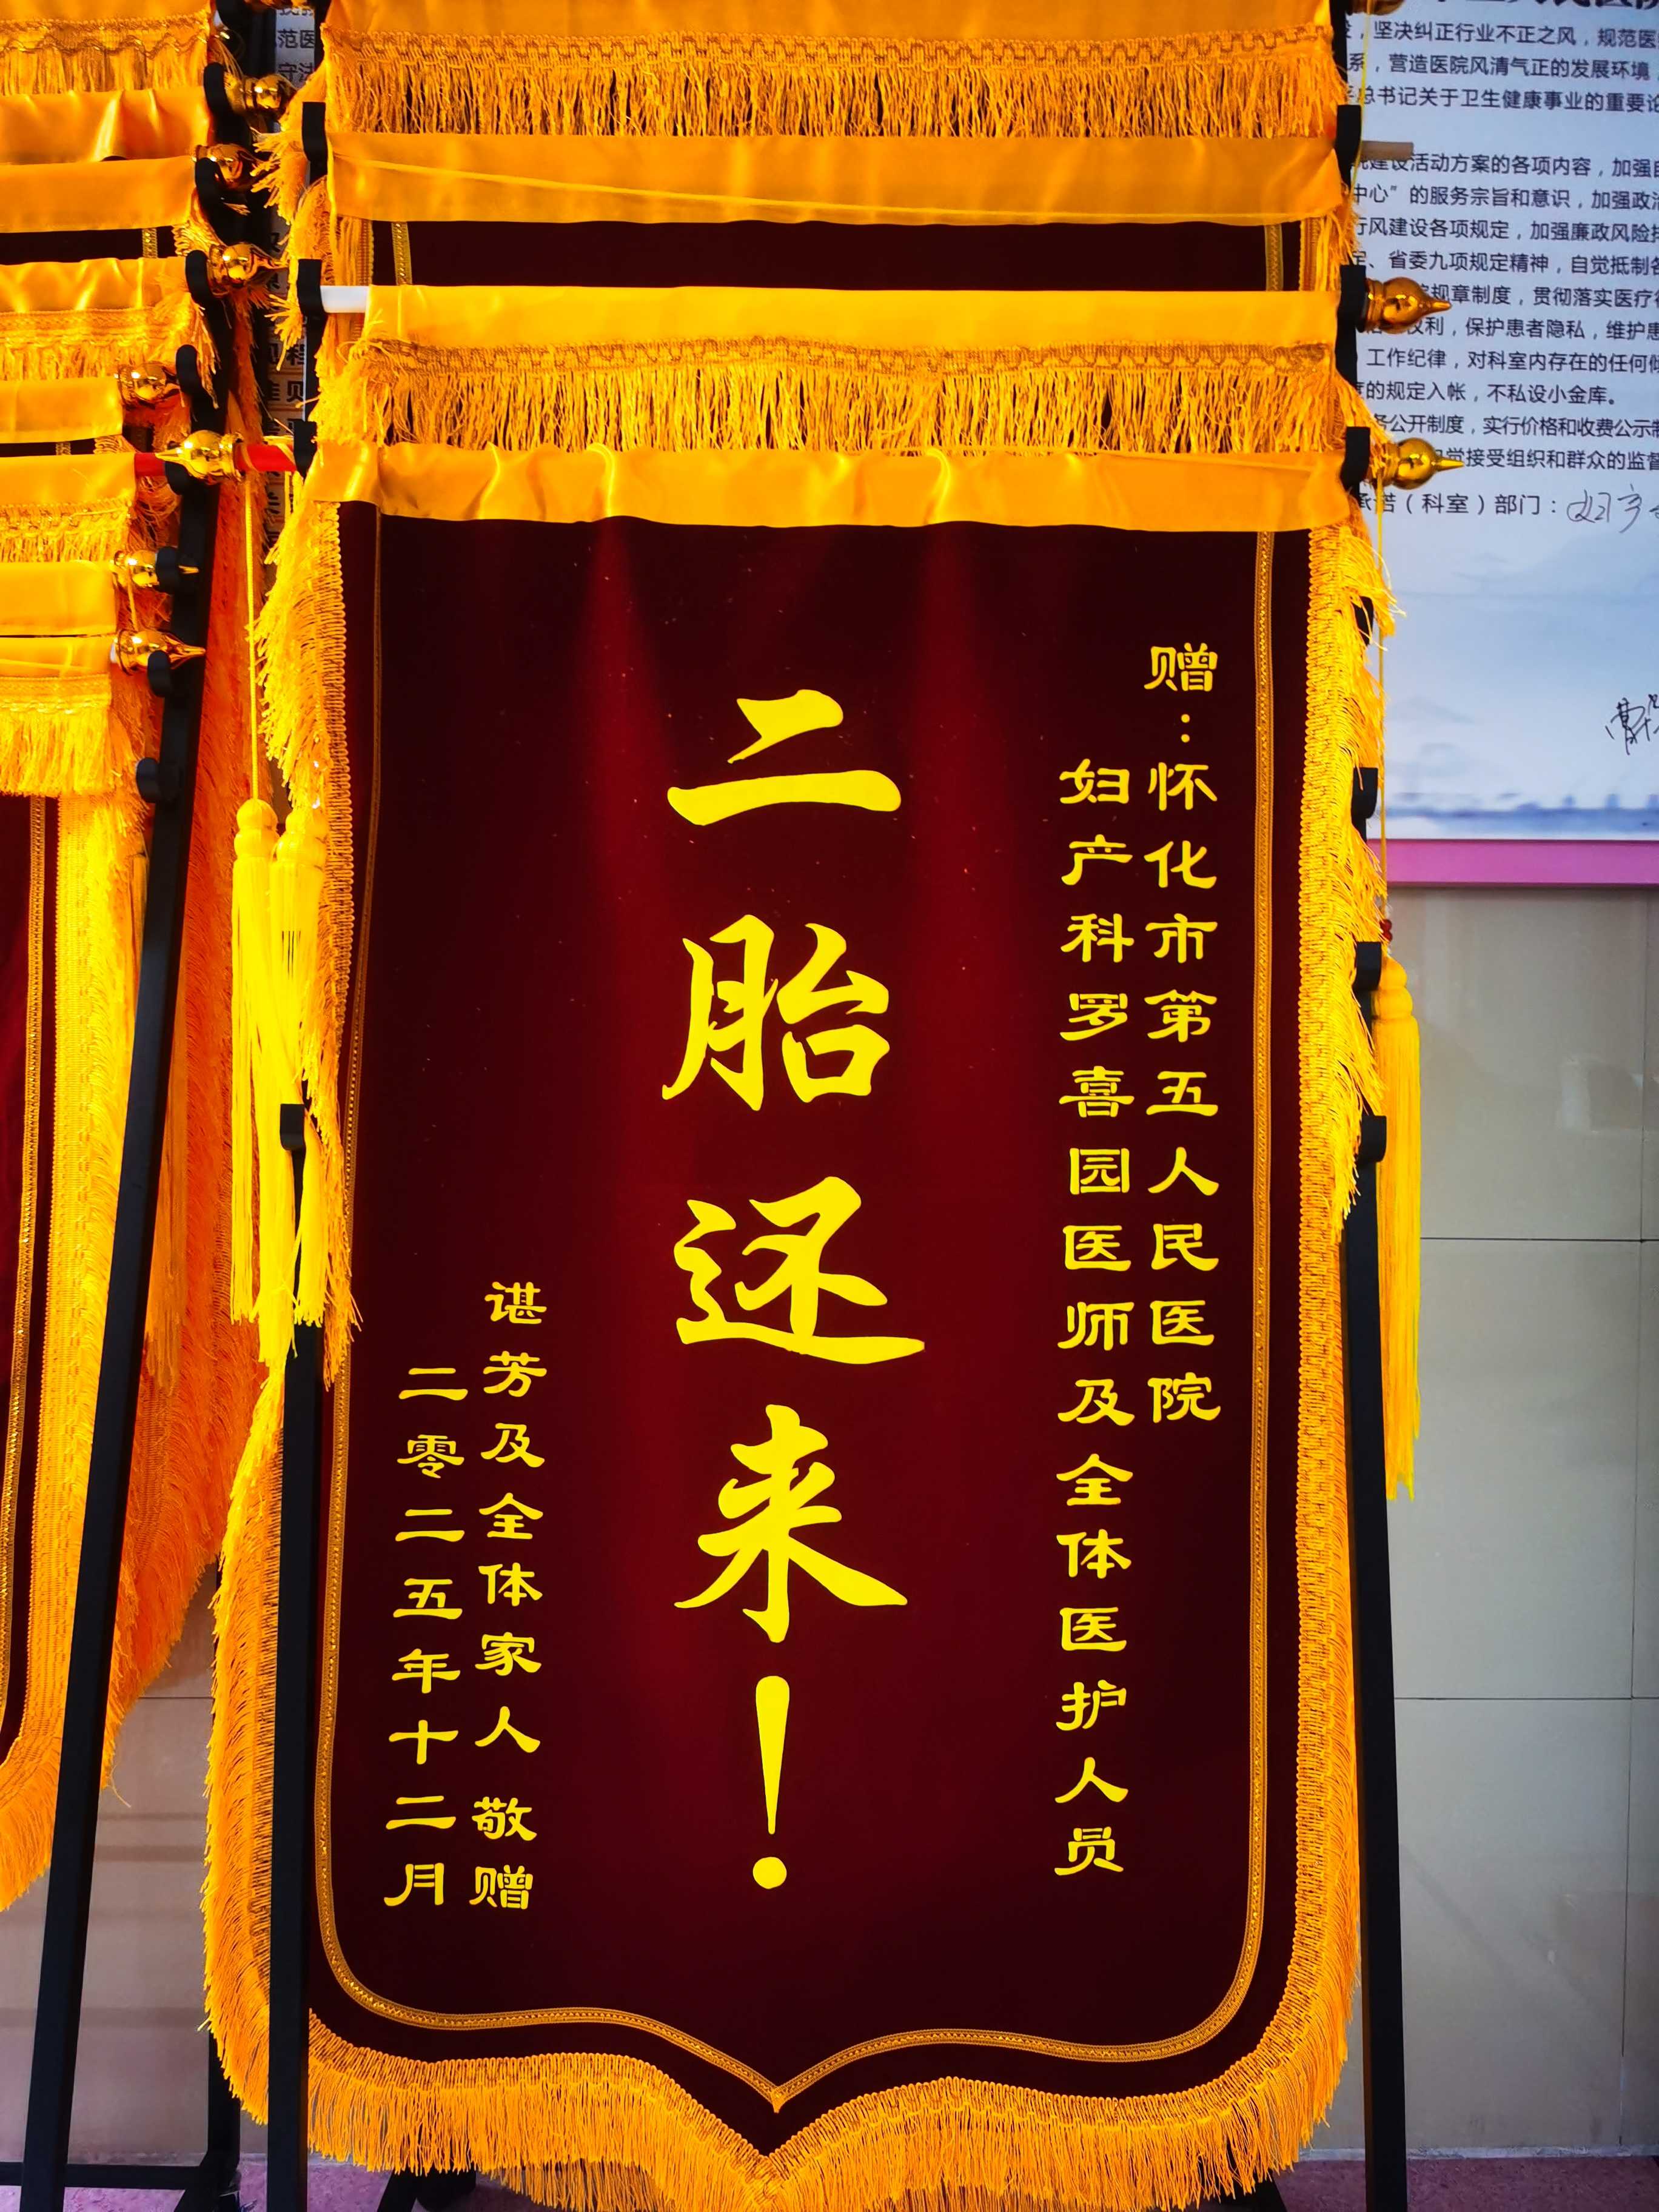 赠：怀化市第五人民医院
妇产科罗喜园医师及全体医护人员
二胎还来！
谌芳及全体家人 敬赠
二零二五年十二月
，坚决纠正行业不正之风，规范医
系，营造医院风清气正的发展环境，
总书记关于卫生健康事业的重要论
建设活动方案的各项内容，加强
中心”的服务宗旨和意识，加强政治
行风建设各项规定，加强廉政风险
、省委九项规定精神，自觉抵制各
规章制度，贯彻落实医疗
权利，保护患者隐私，维护患
工作纪律，对科室内存在的任何
的规定入帐，不私设小金库。
公开制度，实行价格和收费公示制
接受组织和群众的监督
承诺（科室）部门：